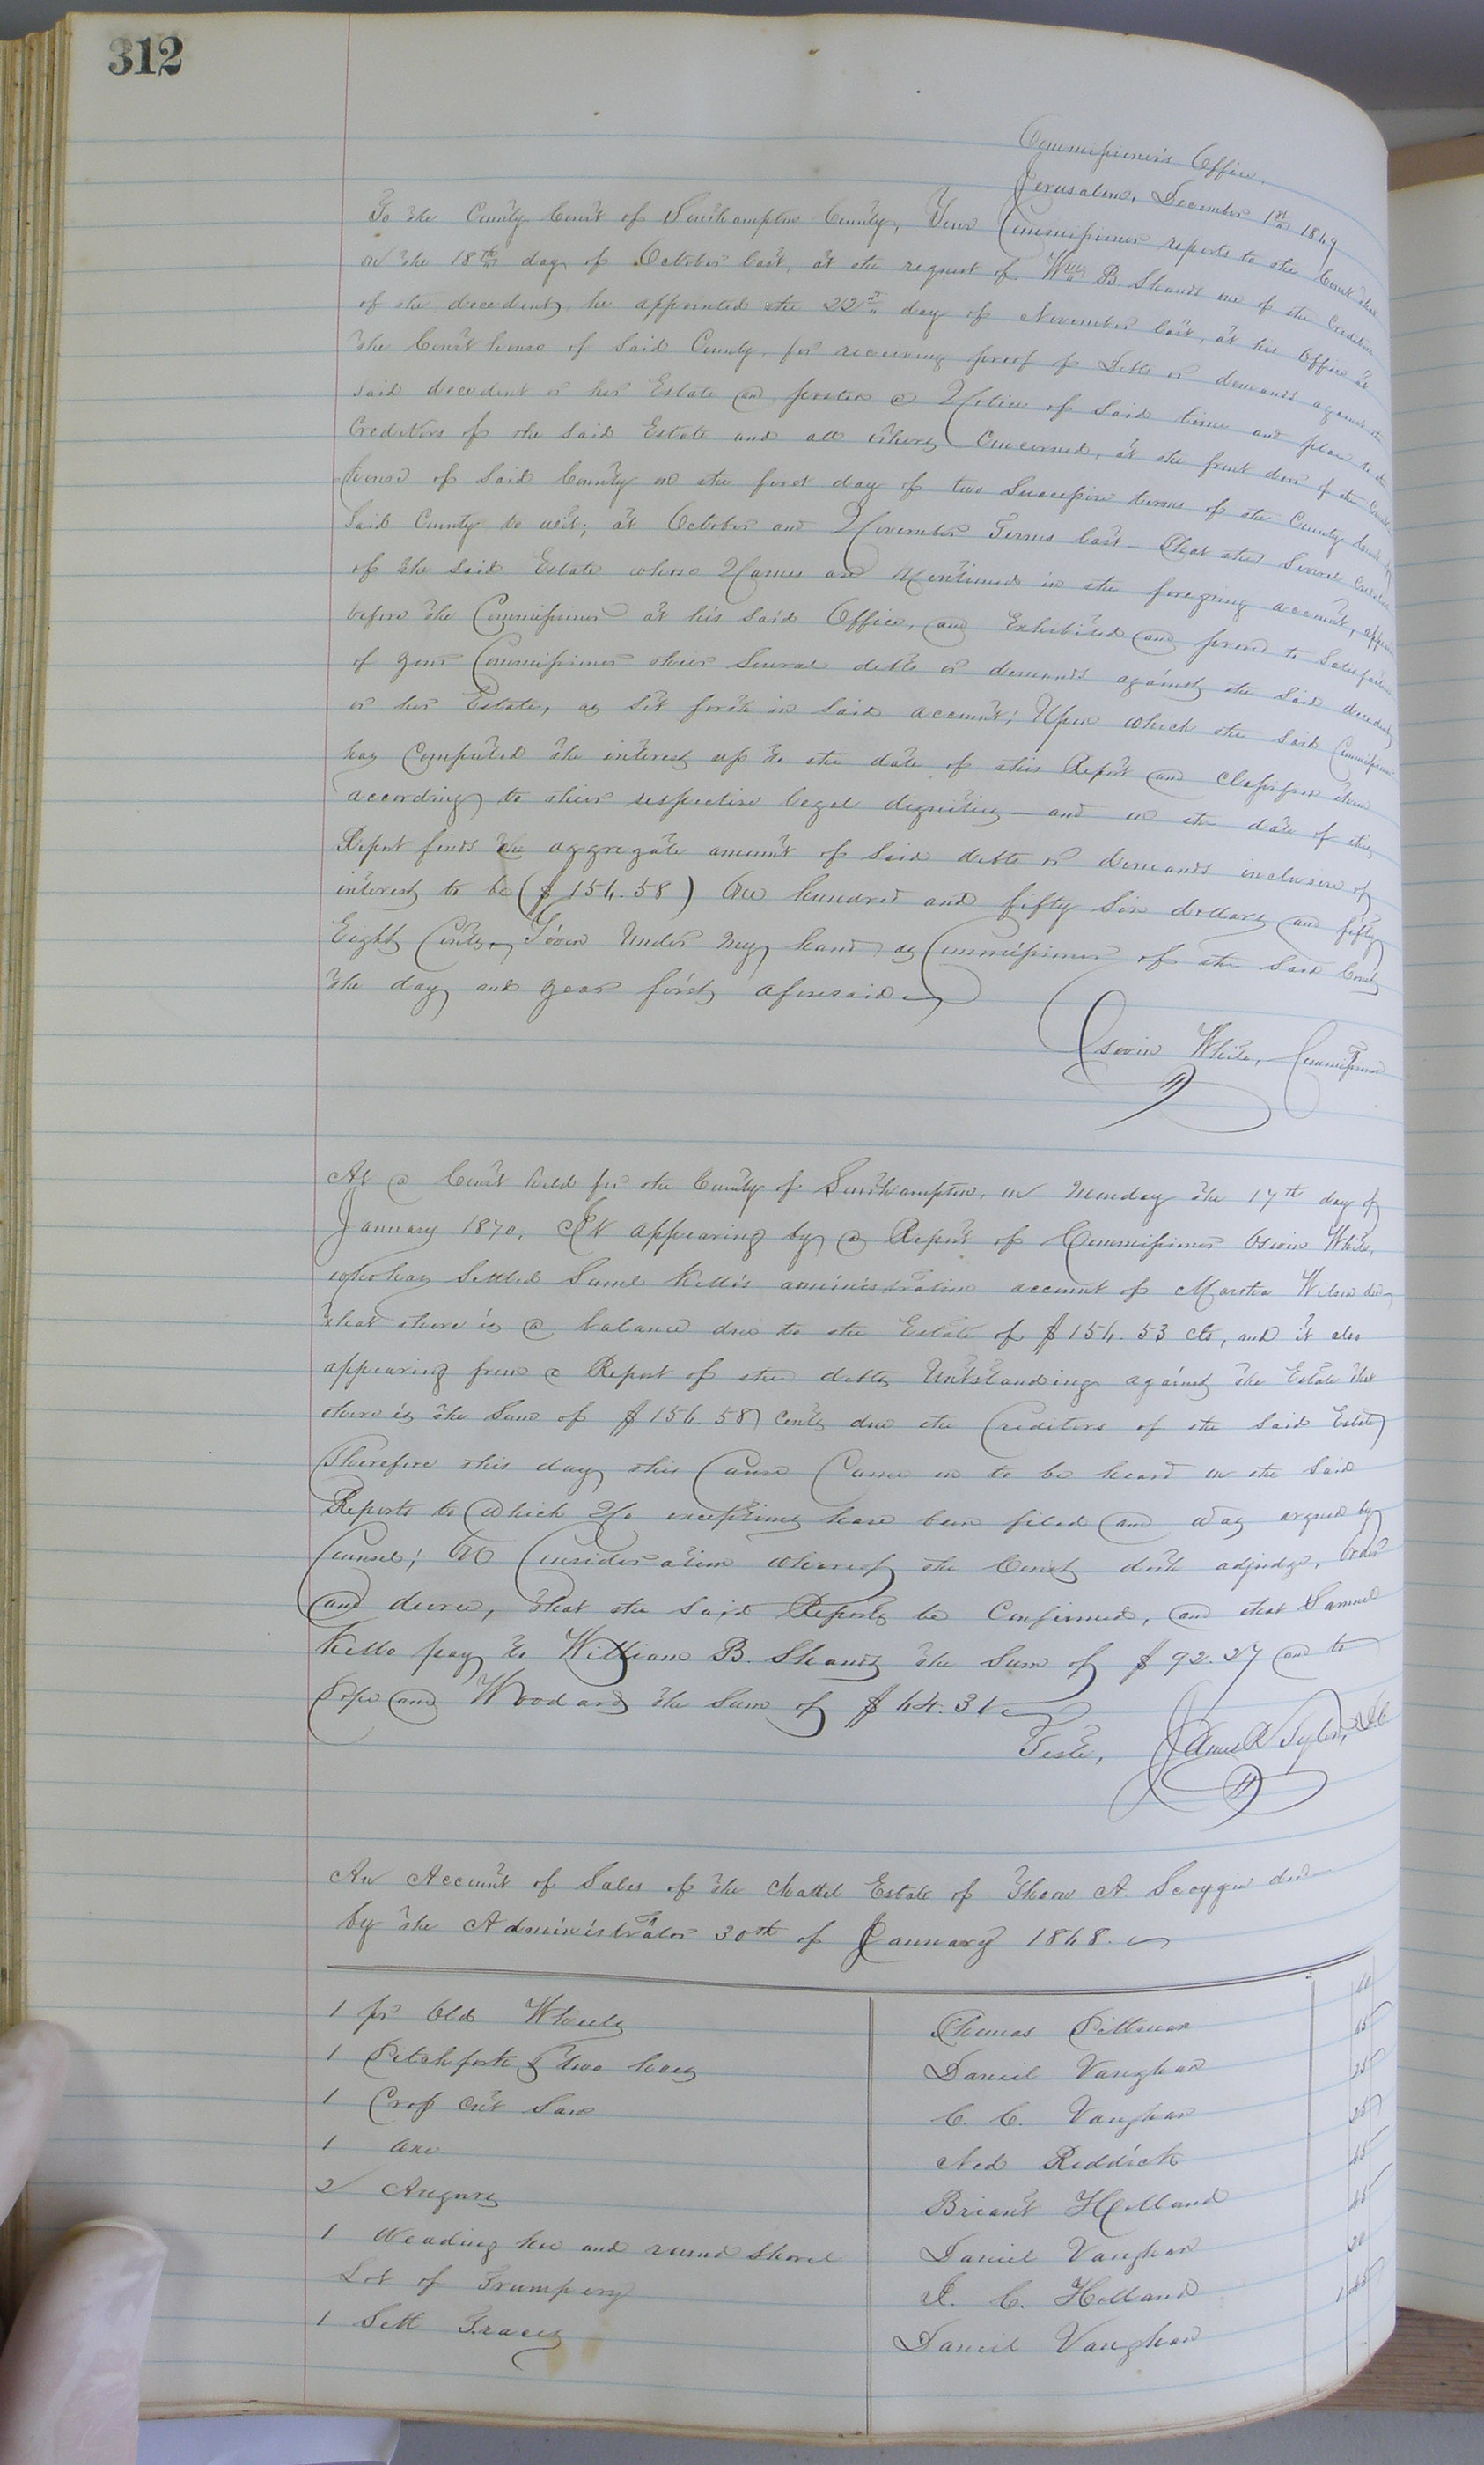 312
Commissioner's Office,
Jerusalem, December 1st 1869
To the County Court of Southampton County, Your Commissioner reports to the Court that
on the 18th day of October last, at the request of Wm B. Shands one of the Creditors
of the decedent, he appointed the 22nd day of November last, at his Office at
the Court house of said County, for receiving proof of Debts or demands against the
said decedent or her Estate and posted a Notice of said time and place to the
Creditors of the said Estate and all others Concerned, at the front door of the Court
house of said County on the first day of two Successive terms of the County Court of
said County to wit; at October and November Terms last - That the Several Creditors
of the said Estate whose Names are Mentioned in the foregoing account, appeared
before the Commissioner at his said Office, and Exhibited and proved to Satisfaction
of your Commissioner their Several debts or demands against the said decedent
or her Estate, as set forth in said account; Upon which the said Commissioner
has Computed the interest up to the date of this Report and Classified them
according to their respective legal dignities - and on the date of this
Report finds the aggregate amount of said debts or demands inclusive of
interest to be ($156.58) One hundred and fifty Six dollars and fifty
Eight Cents. Given Under My hand as Commissioner of the said Court
the day and year first aforesaid
Oswin White, Commissioner
At a Court held for the County of Southampton, on Monday the 17th day of
January 1870, It appearing by a Report of Commissioner Oswin White,
who has Settled Saml Kello's administration account of Martha Wilson decd
that there is a balance due to the Estate of $156.53 cts, and it also
appearing from a Report of the debts Outstanding against the Estate that
there is the Sum of $156.58 cents due the Creditors of the said Estate
Therefore this day this Cause Came on to be heard on the said
Reports to which No exceptions have been filed and was argued by
Counsel; On Consideration whereof the Court doth adjudge, Order
and decree, that the said Reports be Confirmed, and that Samuel
Kello pay to William B. Shands the Sum of $92.27 and to
Pope and Woodard the Sum of $64.31
Teste, James R Tyler, D.C.
An Account of Sales of the Chattel Estate of Thom A Scoggin decd
by the Administrator 30th of January 1868.
1 pr Old Wheels Thomas Pittman 60
1 Pitchfork & two hoes Daniel Vaughan
1 Crop cut Saw C. C. Vaughan
1 axe Ned Reddick
2 Augurs Briant Holland
1 Weading hoe and round Shovel Daniel Vaughan
Lot of Trumpery J. C. Holland 20
1 Sett Traces Daniel Vaughan